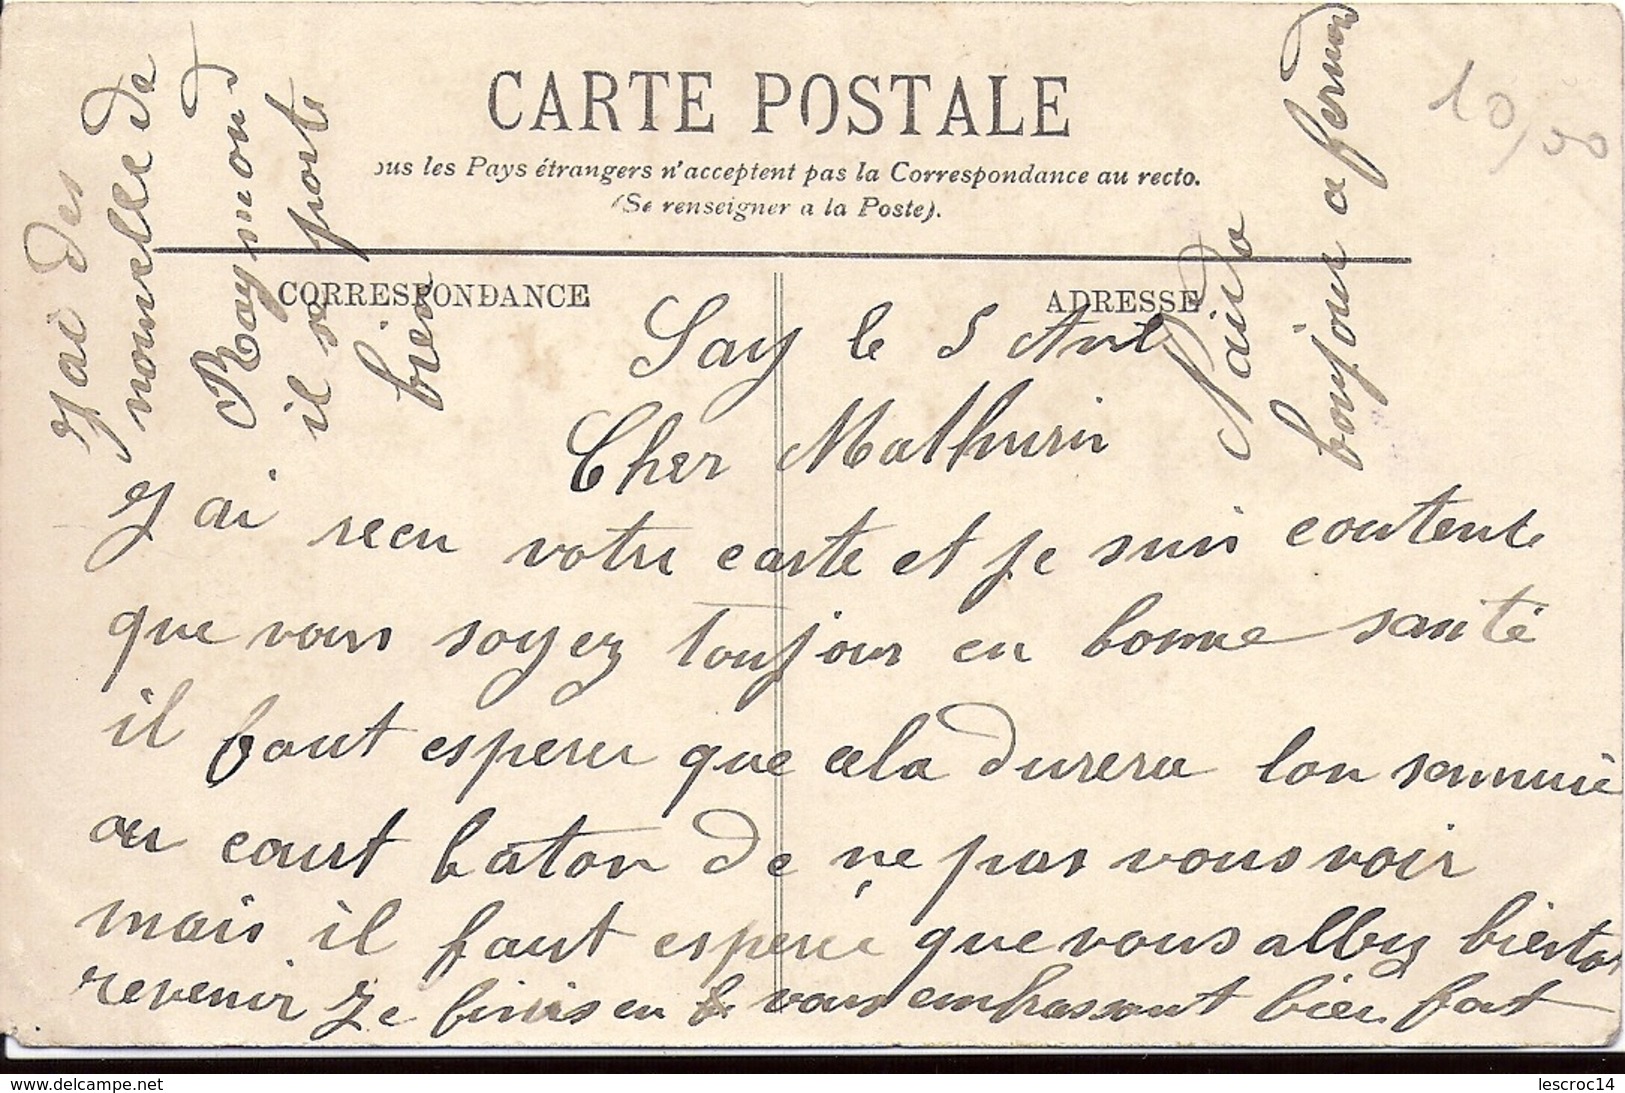 CARTE POSTALE
ous les Pays étrangers n'acceptent pas la Correspondance au recto.
(Se renseigner a la Poste).
CORRESPONDANCE
ADRESSE
10,00
Say le 5 Avil
Cher Mathurin
J ai recu votre carte et je suis contente
que vous soyez toujour en bonne santé
il faut esperer que cela durera lon sennuie
au court baton de ne pas vous voir
mais il faut esperer que vous allez bientot
revenir Je finis en vous embrassant bien fort
J ai des
nouvelle de
Raymond
il se porte
bien
bonjour a fernand
delcampe.net
lescroc14